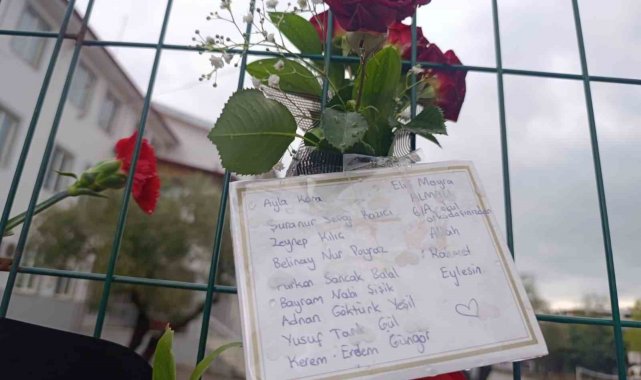 Ayla Kara
Şuranur Sevgi Kazıcı
Zeynep Kılıç
Belinay Nur Poyraz
Furkan Sancak Balal
Bayram Nabi Şişik
Adnan Göktürk Yeşil
Yusuf Tarık Gül
Kerem Erdem Güngör
Mayra
6/A
arkadaşınızdan
Allah
Rahmet
Eylesin